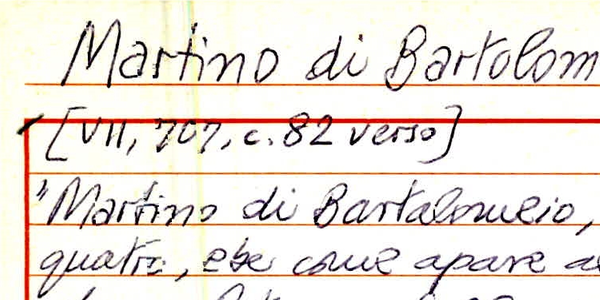 Martino di Bartolom
[VII, 707, c. 82 verso]
"Martino di Bartalomeio,
quatro, ebe come apare a